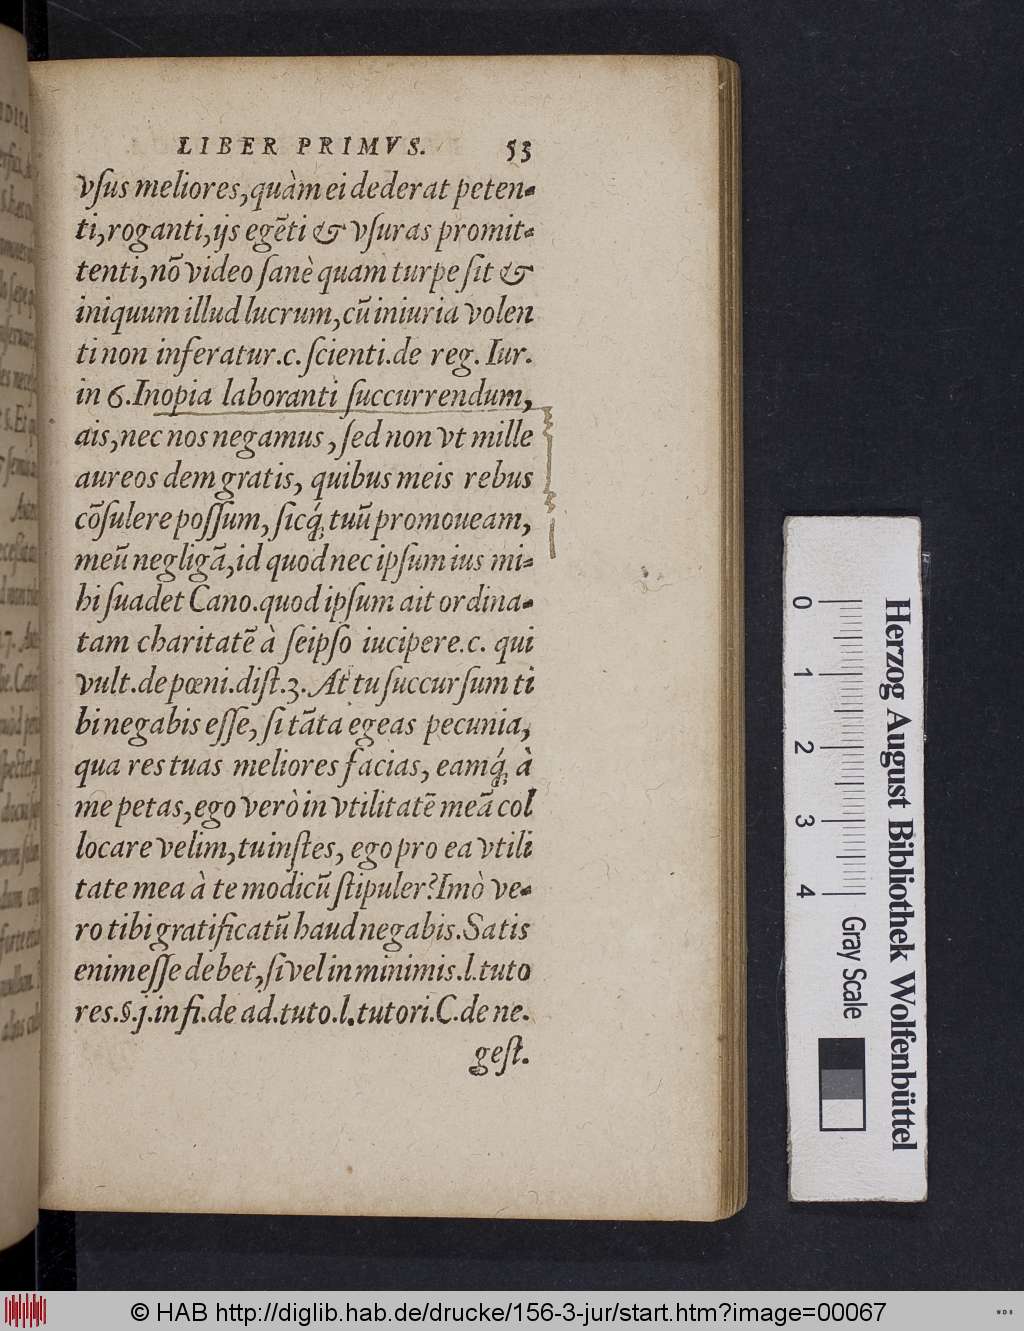 LIBER PRIMVS. 53
vſus meliores, quàm ei dederat peten-
ti, roganti, ijs egẽti & vſuras promit-
tenti, nõ video ſanè quam turpe ſit &
iniquum illud lucrum, cũ iniuria volen
ti non inferatur. c. ſcienti. de reg. Iur.
in 6. Inopia laboranti ſuccurrendum,
ais, nec nos negamus, ſed non vt mille
aureos dem gratis, quibus meis rebus
cõſulere poſſum, ſicq́; tuũ promoueam,
meũ negligã, id quod nec ipſum ius mi-
hi ſuadet Cano. quod ipſum ait ordina-
tam charitatẽ à ſeipſo iucipere. c. qui
vult. de pœni. diſt. 3. At tu ſuccurſum ti
bi negabis eſſe, ſi tãta egeas pecunia,
qua res tuas meliores facias, eamq́; à
me petas, ego verò in vtilitatẽ meã col
locare velim, tu inſtes, ego pro ea vtili
tate mea à te modicũ ſtipuler? Imò ve-
ro tibi gratificatũ haud negabis. Satis
enim eſſe debet, ſi vel in minimis. l. tuto
res. §. j. in fi. de ad. tuto. l. tutori. C. de ne.
geſt.
Herzog August Bibliothek Wolfenbüttel
0 1 2 3 4 Gray Scale
© HAB http://diglib.hab.de/drucke/156-3-jur/start.htm?image=00067